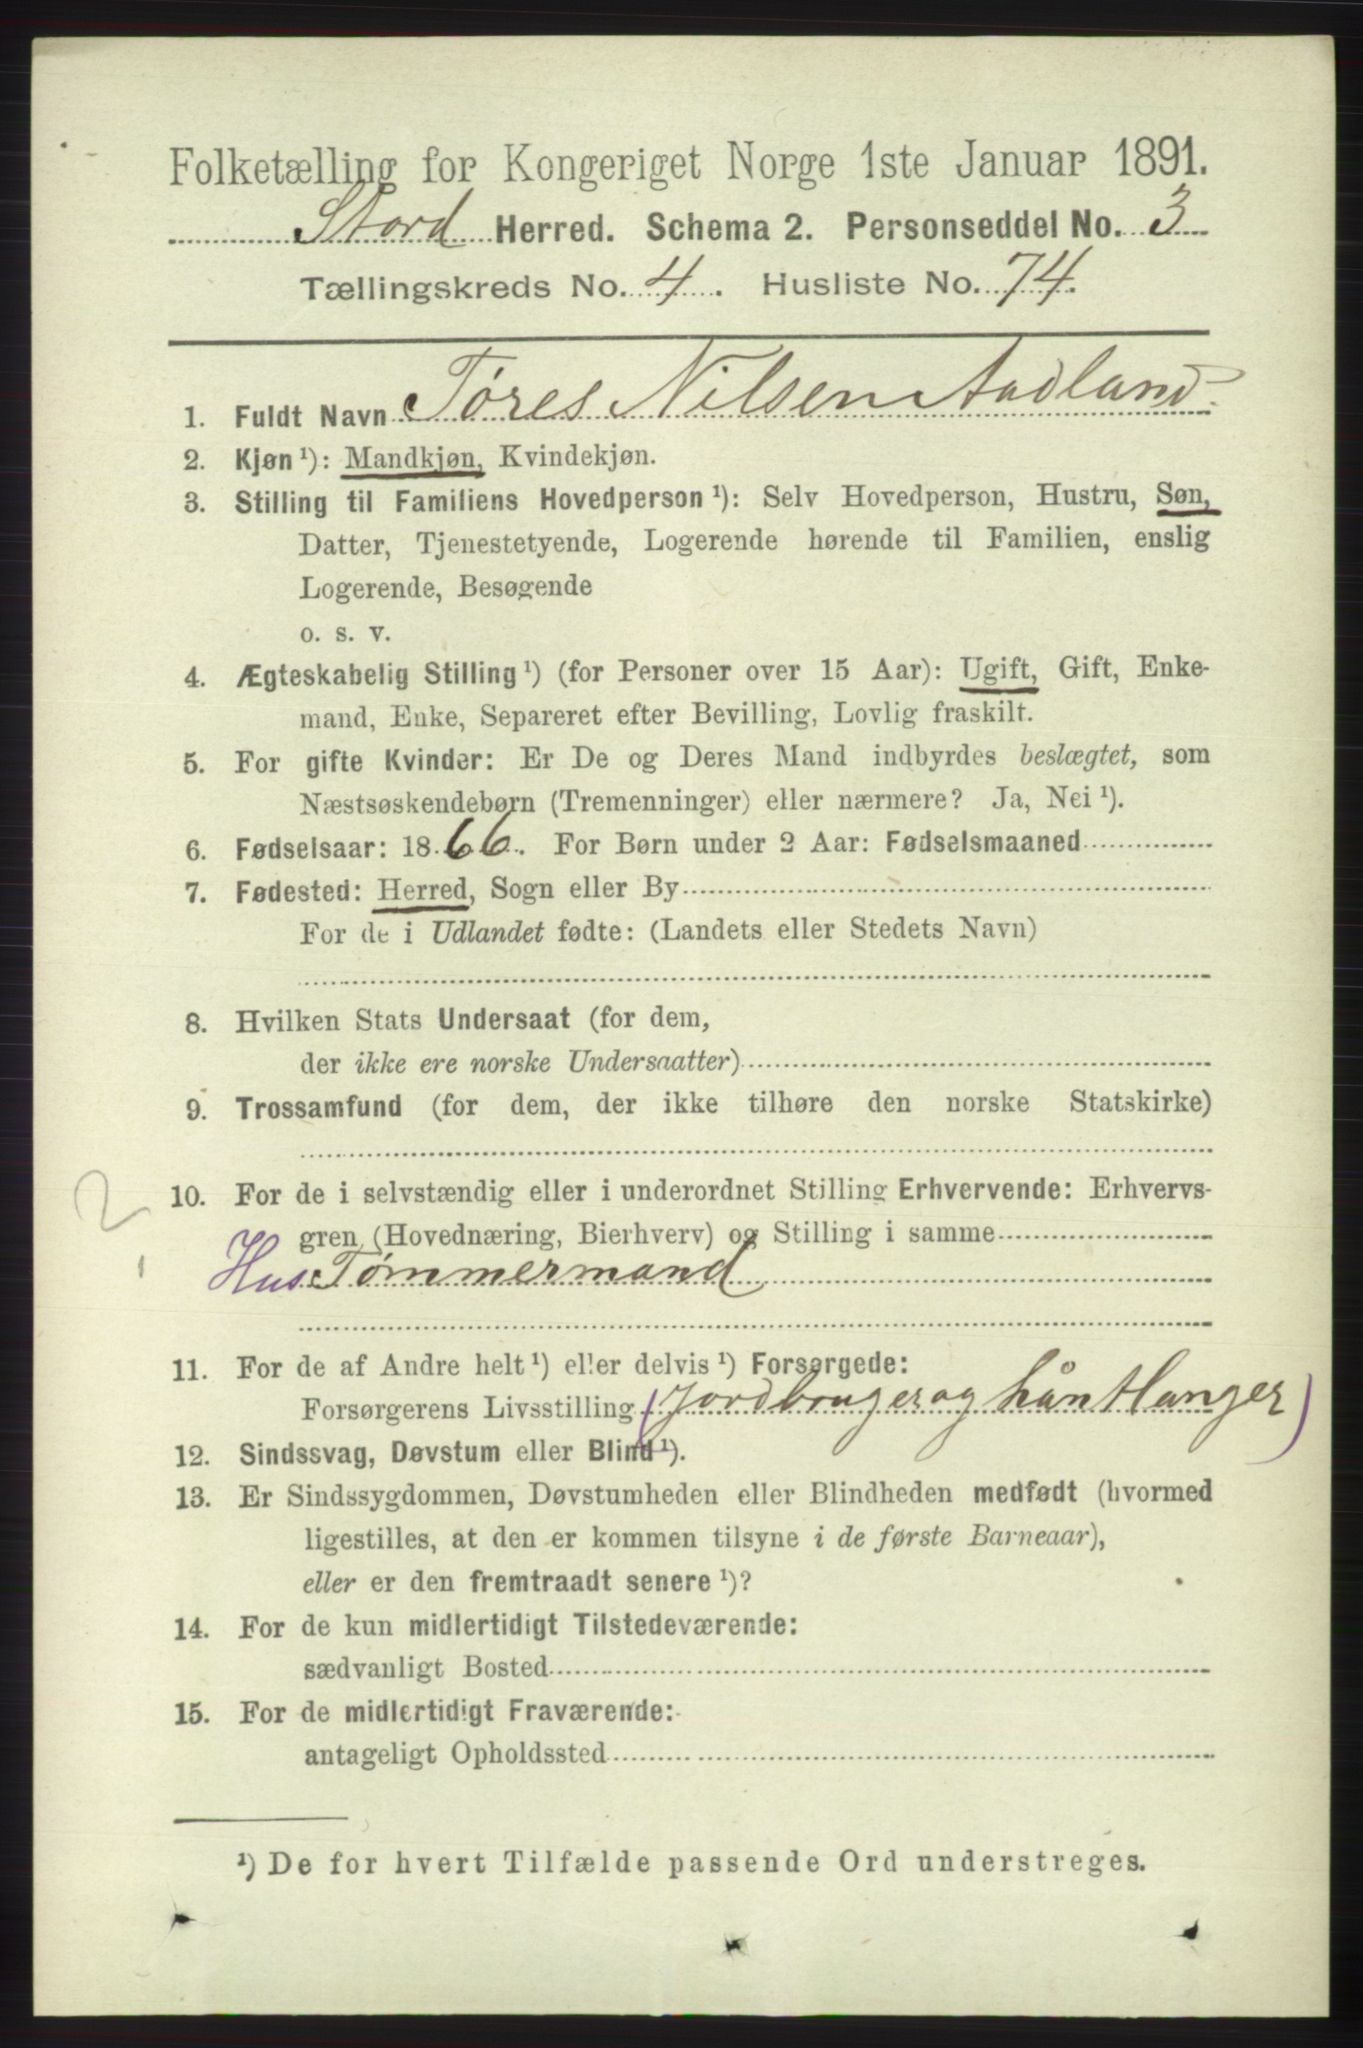 Folketælling for Kongeriget Norge 1ste Januar 1891.
Stord Herred. Schema 2. Personseddel No. 3
Tællingskreds No. 4. Husliste No. 74.
1. Fuldt Navn Tøres Nilsen Aadland
2. Kjøn ¹): Mandkjøn, Kvindekjøn.
3. Stilling til Familiens Hovedperson ¹): Selv Hovedperson, Hustru, Søn,
Datter, Tjenestetyende, Logerende hørende til Familien, enslig
Logerende, Besøgende
o. s. v.
4. Ægteskabelig Stilling ¹) (for Personer over 15 Aar): Ugift, Gift, Enke-
mand, Enke, Separeret efter Bevilling, Lovlig fraskilt.
5. For gifte Kvinder: Er De og Deres Mand indbyrdes beslægtet, som
Næstsøskendebørn (Tremenninger) eller nærmere? Ja, Nei ¹).
6. Fødselsaar: 1866. For Børn under 2 Aar: Fødselsmaaned
7. Fødested: Herred, Sogn eller By
For de i Udlandet fødte: (Landets eller Stedets Navn)
8. Hvilken Stats Undersaat (for dem,
der ikke ere norske Undersaatter)
9. Trossamfund (for dem, der ikke tilhøre den norske Statskirke)
2
10. For de i selvstændig eller i underordnet Stilling Erhvervende: Erhvervs-
gren (Hovednæring, Bierhverv) og Stilling i samme
Hus: Tømmermand
11. For de af Andre helt ¹) eller delvis ¹) Forsørgede:
Forsørgerens Livsstilling (Jordbruger og hånt langer)
12. Sindssvag, Døvstum eller Blind ¹).
13. Er Sindssygdommen, Døvstumheden eller Blindheden medfødt (hvormed
ligestilles, at den er kommen tilsyne i de første Barneaar),
eller er den fremtraadt senere ¹)?
14. For de kun midlertidigt Tilstedeværende:
sædvanligt Bosted
15. For de midlertidigt Fraværende:
antageligt Opholdssted
¹) De for hvert Tilfælde passende Ord understreges.